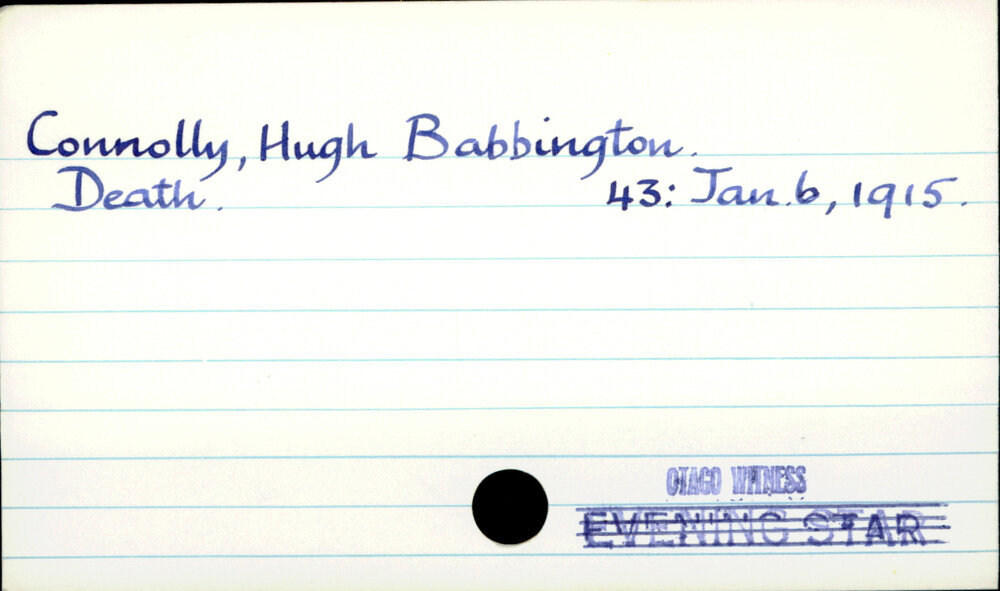 Connolly, Hugh Babbington.
Death. 43: Jan. 6, 1915.
OTAGO WITNESS
EVENING STAR